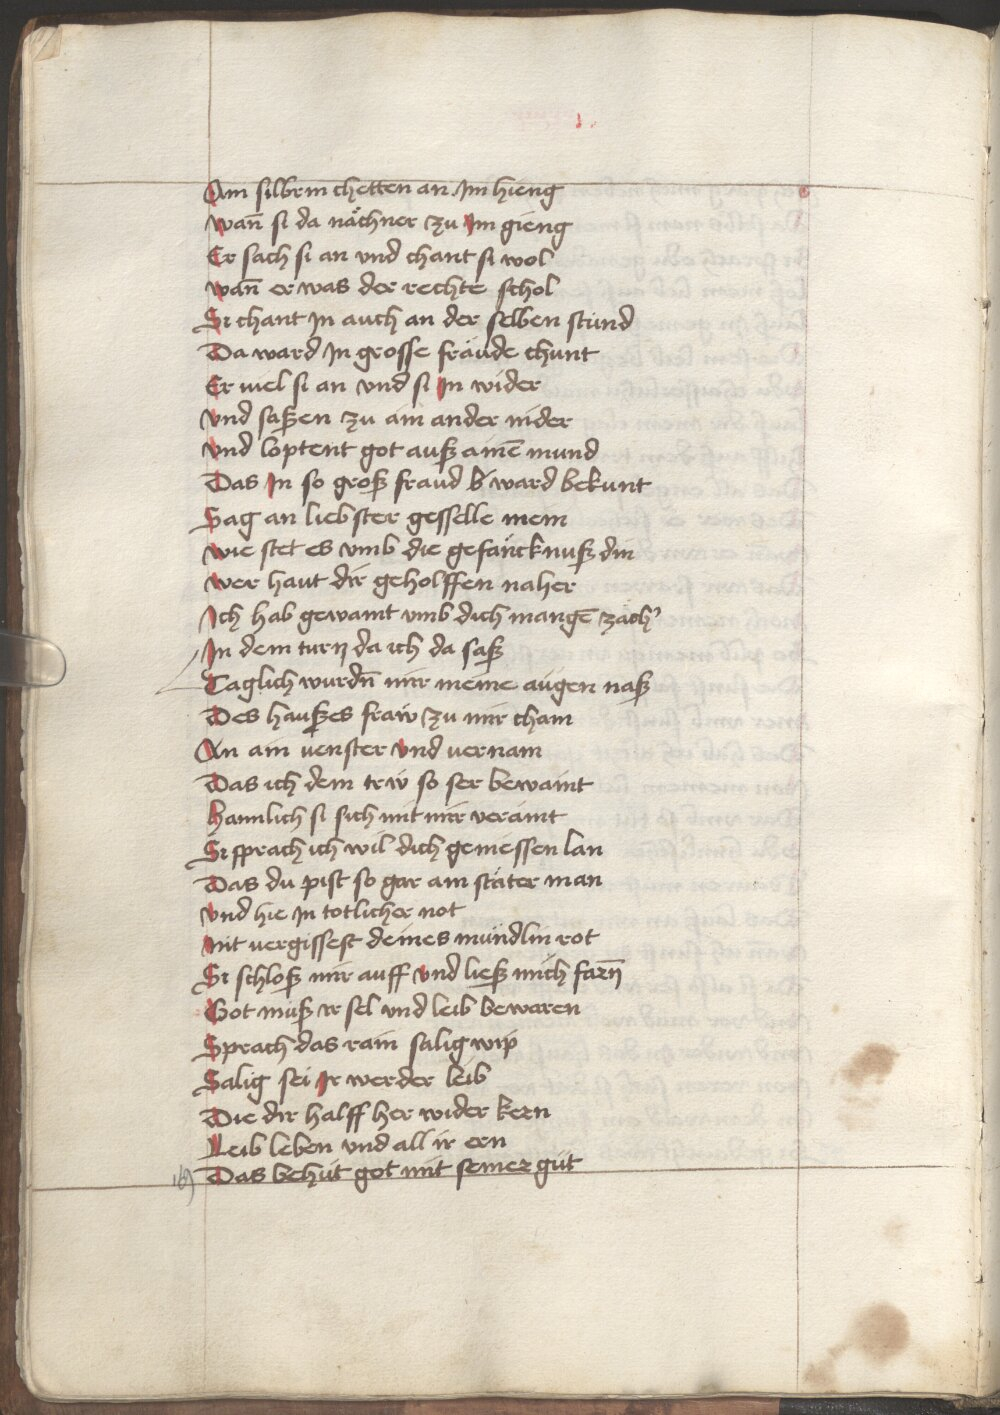 Am silbrin chetten an Im hieng
wan̄ si da nächner zu Im gieng
Er sach si an vnd chant si wol
wan̄ er was der rechte schol
Si chant In auch an der selben stünd
Da ward In grosse fräude chunt
Er viel si an vnd si In wider
vnd saßen zu ain ander nider
vnd loptent got auß aine̅ mund
Das In so groß fraud b ward bekunt
Sag an liebster gesselle mein
wie stet es vmb die gefäncknuß din
wer haut dir geholffen naher
Ich hab gewaint vmb dich mange̅ zäch'
In dem turn da ich da saß
Taglich wurdn̄ mir meine augen naß
Des haußes fraw zu mir cham
An ain venster vnd vernam
Das ich dein trw so ser bewaint
hainlich si sich mit mir veraint
Si sprach ich wil dich geniessen lan
Das du pist so gar ain stäter man
vnd hie In totlicher not
nit vergissest deines mündlin rot
Si schloß mir auff vnd ließ mich farn̄
Got müß ir sel vnd leib bewaren
Sprach das rain sälig wip
Salig sei Ir werder leib
Die dir halff her wider kern
Leib leben vnd all ir ern
Das behüt got mit seiner güt